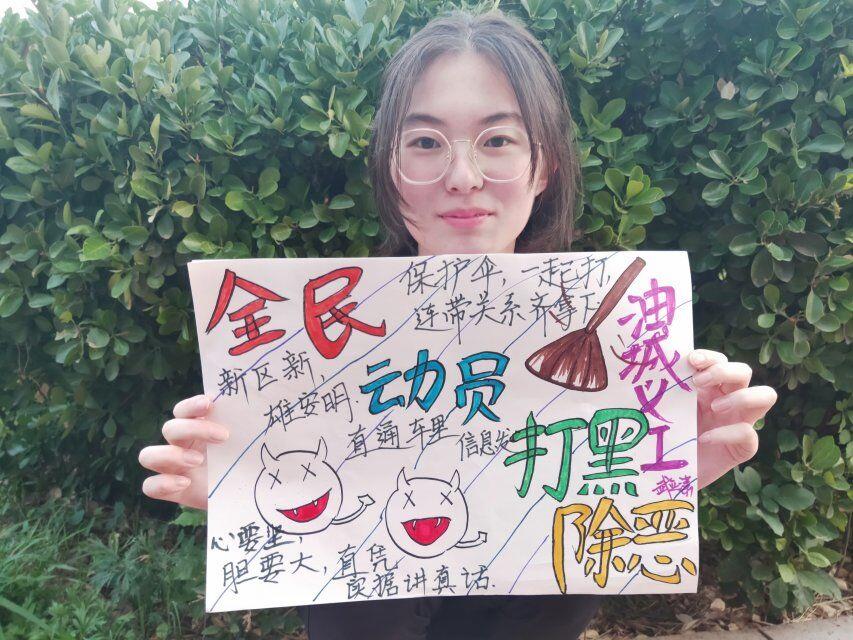 全民
保护伞,一起打,
连带关系齐拿下
油城义工
新区新,
雄安明.
动员
直通车里
信息发
打黑
除恶
心要坚,
胆要大,直凭
良据讲真话.